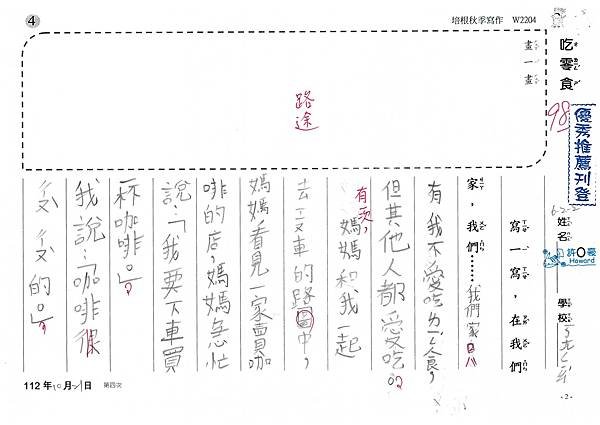 4
培根秋季寫作 W2204
吃零食
畫一畫
98
優秀推薦刊登
路途
姓名
許○豪
Howard
學校
寫一寫，在我們
家，我們……我們家只
有我不愛吃ㄌㄥ食，
但其他人都愛吃。
有次，
媽媽和我一起
去ㄐㄧㄝ車的路途中，
媽媽看見一家賣咖
啡的店，媽媽急忙
說：「我要下車買
一杯咖啡。」
我說：「咖啡很
112年10月21日 第四次
-2-